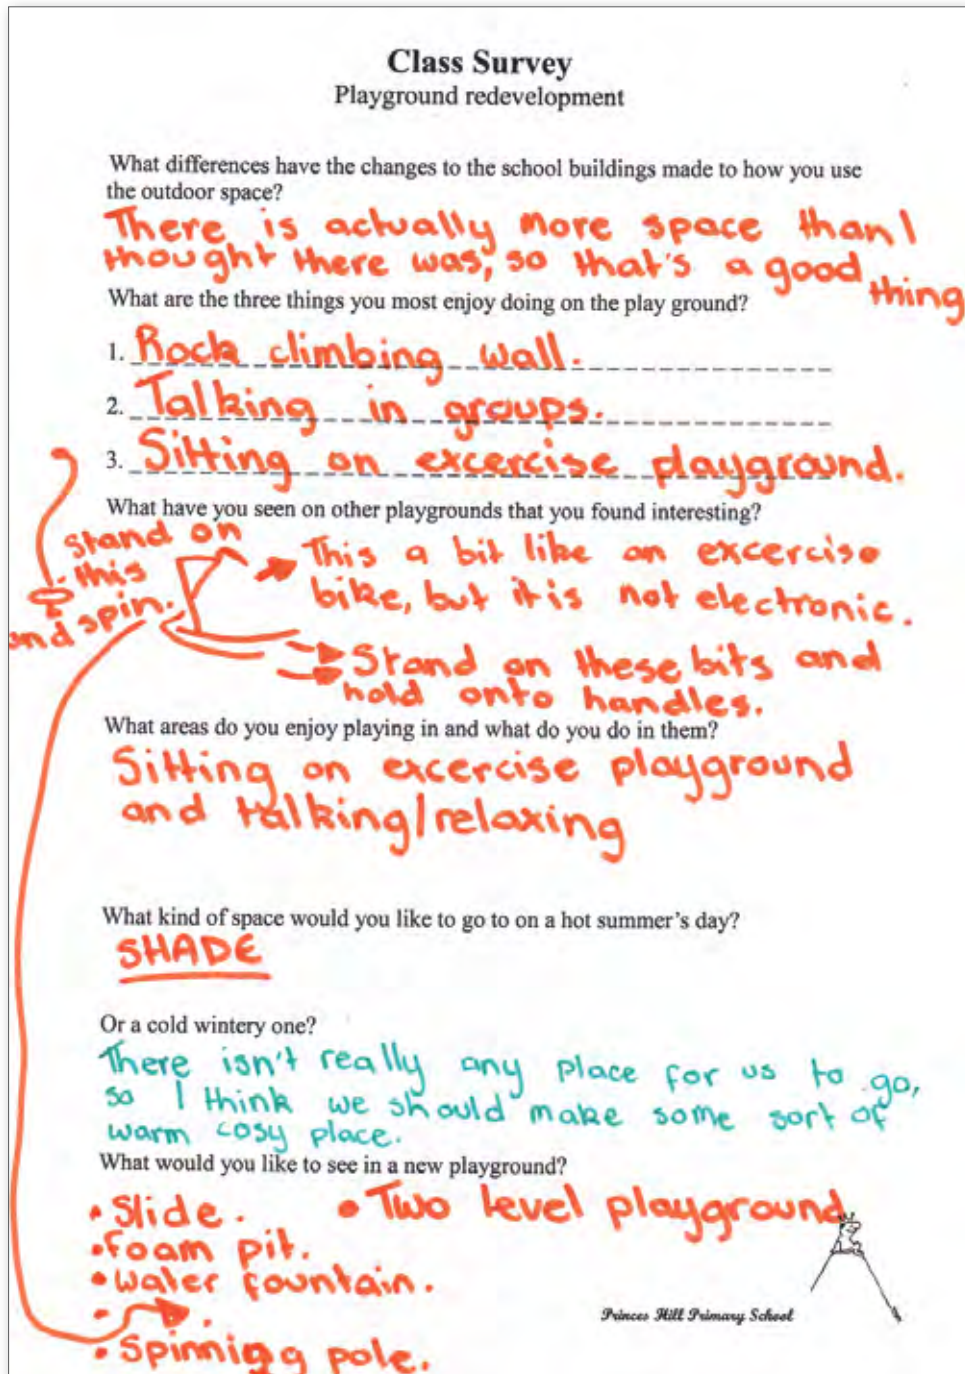 Class Survey
Playground redevelopment
What differences have the changes to the school buildings made to how you use
the outdoor space?
There is actually more space than I
thought there was, so that's a good thing
What are the three things you most enjoy doing on the play ground?
1. Rock climbing wall.
2. Talking in groups.
3. Sitting on excercise playground.
What have you seen on other playgrounds that you found interesting?
stand on
this
and spin.
This a bit like an excercise
bike, but it is not electronic.
Stand on these bits and
hold onto handles.
What areas do you enjoy playing in and what do you do in them?
Sitting on excercise playground
and talking/relaxing
What kind of space would you like to go to on a hot summer's day?
SHADE
Or a cold wintery one?
There isn't really any place for us to go,
so I think we should make some sort of
warm cosy place.
What would you like to see in a new playground?
• Slide.
• Two level playground
• foam pit.
• water fountain.
• .
• Spinning pole.
Princes Hill Primary School